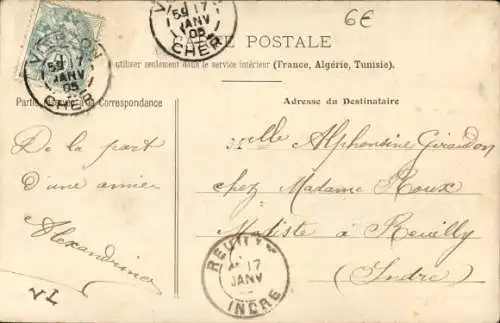 6€
VIERZON
5S 17
JANV
05
CHER
VIERZON
5S 17
JANV
05
CHER
CARTE POSTALE
à utiliser seulement dans le service intérieur (France, Algérie, Tunisie).
Correspondance
Adresse du Destinataire
De la part
d'une amie
Alexandrine
Mlle Alphonsine Giraudon
chez Madame Roux
Modiste à Reuilly
(Indre)
REUILLY
17
JANV
INDRE